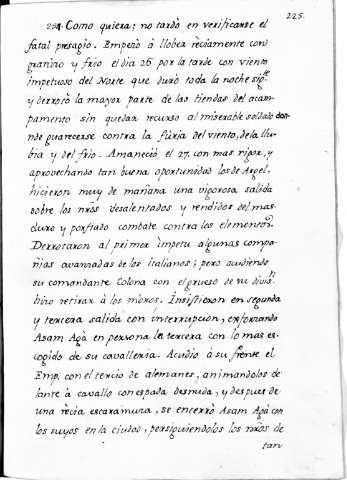 225.
221. Como quiera; no tardò en verificarse el
fatal presagio. Empezò à llober rèciamente con
granizo y frio el dia 26 por la tarde con viento
impetuoso del Norte que durò toda la noche sigte
y derrocò la mayor parte de las tiendas del acam-
pamento sin quedar recurso al miserable soldado do-
nde guarecerse contra la fùria del viento, de la llu-
bia y del frio. Amaneciò el 27. con mas rigor, y
aprovechando tan buena oportunidad los de Argel,
hicieron muy de mañana una vigorosa salida
sobre los nros desalentados y rendidos del mas
duro y porfiado combate contra los elementos.
Derrotaron al primer ìmpetu algunas compa-
ñias avanzadas de los italianos; pero acudiendo
su comandante Colona con el grueso de su divisn
hizo retirar à los moros. Insistieron en segunda
y tercera salida con interrupcion, esforzando
Asam Agà en persona la tercera con lo mas es-
cogido de su cavalleria. Acudiò à su frente el
Emp. con el tercio de alemanes, animandolos de-
lante à cavallo con espada desnuda, y despues de
una rècia escaramuza, se encerrò Asam Agà con
los suyos en la ciudad, persiguiendolos los nros de
tan